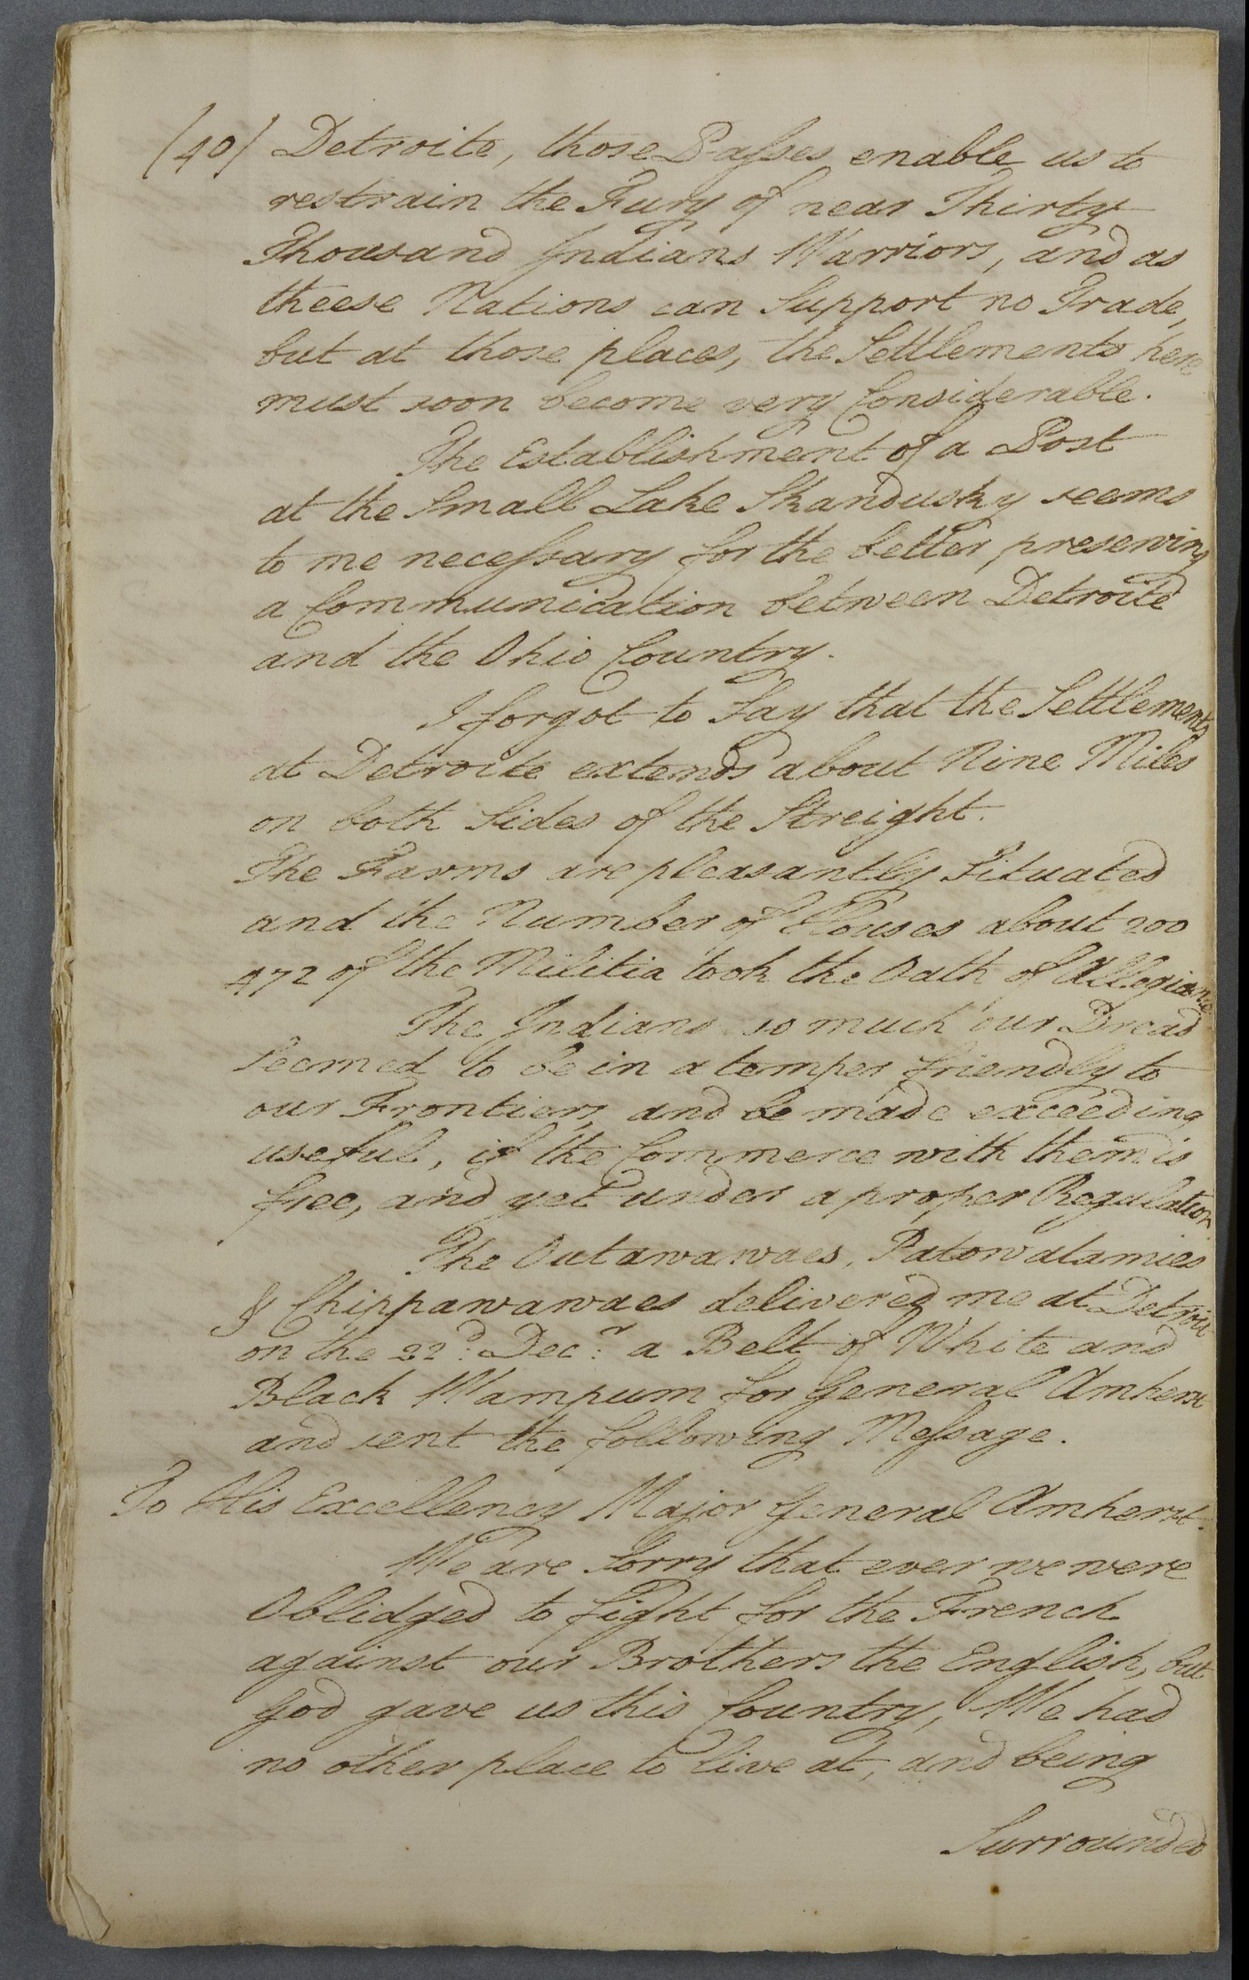 (40) Detroite, those Passes enable us to
restrain the Fury of near Thirty
Thousand Indians Warriors, and as
theese Nations can Support no Trade,
but at those places, the Settlements here
must soon become very Considerable.
The Establishment of a Post
at the Small Lake Skandusky seems
to me necessary for the better preserving
a Communication between Detroite
and the Ohio Country.
I forgot to Say that the Settlements
at Detroite extends about Nine Miles
on both Sides of the Streight.
The Farms are pleasantly Situated
and the Number of Houses about 200
472 of the Militia took the Oath of Allegiance
The Indians so much our Dread
Seemed to be in a temper friendly to
our Frontiers, and be made exceeding
useful, if the Commerce with them is
free, and yet under a proper Regulation
The Outawawaes, Patowatamies
& Chippawawaes delivered me at Detroit
on the 22d: Decr: a Belt of White and
Black Wampum for General Amherst
and sent the following Message.
To His Excellency Major General Amherst.
We are Sorry that ever we were
Oblidged to fight for the French
against our Brothers the English, but
God gave us this Country, We had
no other place to live at, and being
Surrounded